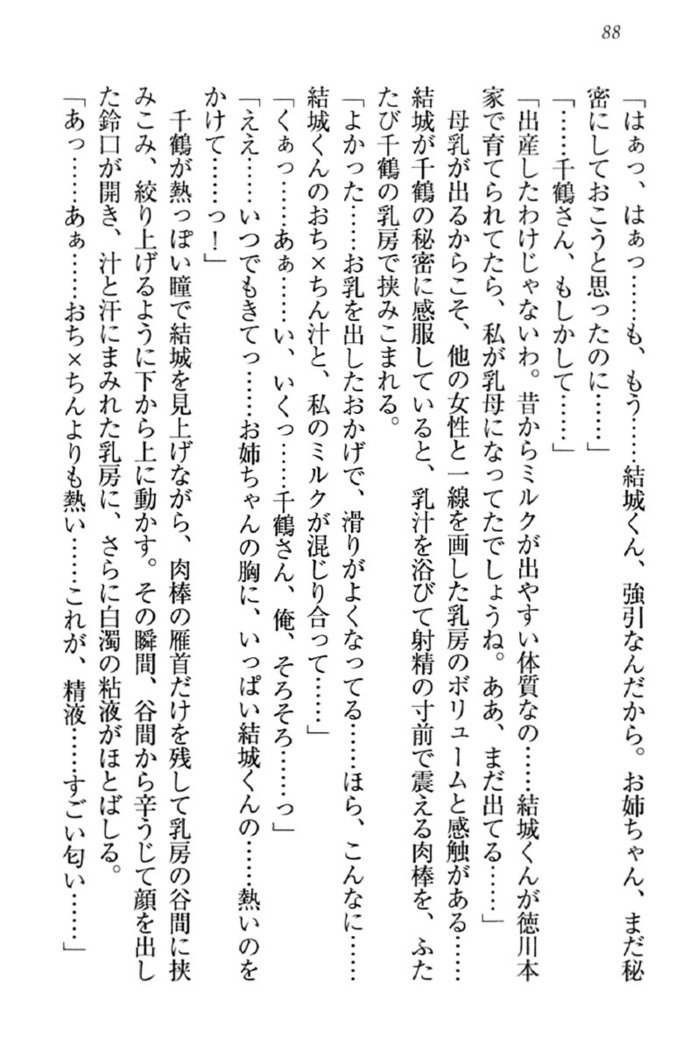 88
「はぁっ、はぁっ……も、もう……結城くん、強引なんだから。お姉ちゃん、まだ秘
密にしておこうと思ったのに……」
「……千鶴さん、もしかして……」
「出産したわけじゃないわ。昔からミルクが出やすい体質なの……結城くんが徳川本
家で育てられてたら、私が乳母になってたでしょうね。ああ、まだ出てる……」
母乳が出るからこそ、他の女性と一線を画した乳房のボリュームと感触がある……
結城が千鶴の秘密に感服していると、乳汁を浴びて射精の寸前で震える肉棒を、ふた
たび千鶴の乳房で挟みこまれる。
「よかった……お乳を出したおかげで、滑りがよくなってる……ほら、こんなに……
結城くんのおち×ちん汁と、私のミルクが混じり合って……」
「くぁっ……あぁ……い、いくっ……千鶴さん、俺、そろそろ……っ」
「ええ……いつでもきてっ……お姉ちゃんの胸に、いっぱい結城くんの……熱いのを
かけて……っ！」
千鶴が熱っぽい瞳で結城を見上げながら、肉棒の雁首だけを残して乳房の谷間に挟
みこみ、絞り上げるように下から上に動かす。その瞬間、谷間から辛うじて顔を出し
た鈴口が開き、汁と汗にまみれた乳房に、さらに白濁の粘液がほとばしる。
「あっ……あぁ……おち×ちんよりも熱い……これが、精液……すごい匂い……」